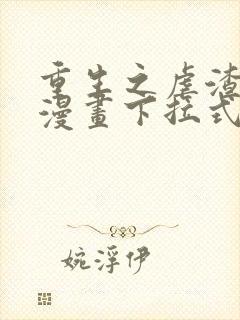 重生之虐渣
漫畫下拉式
婉浮伊